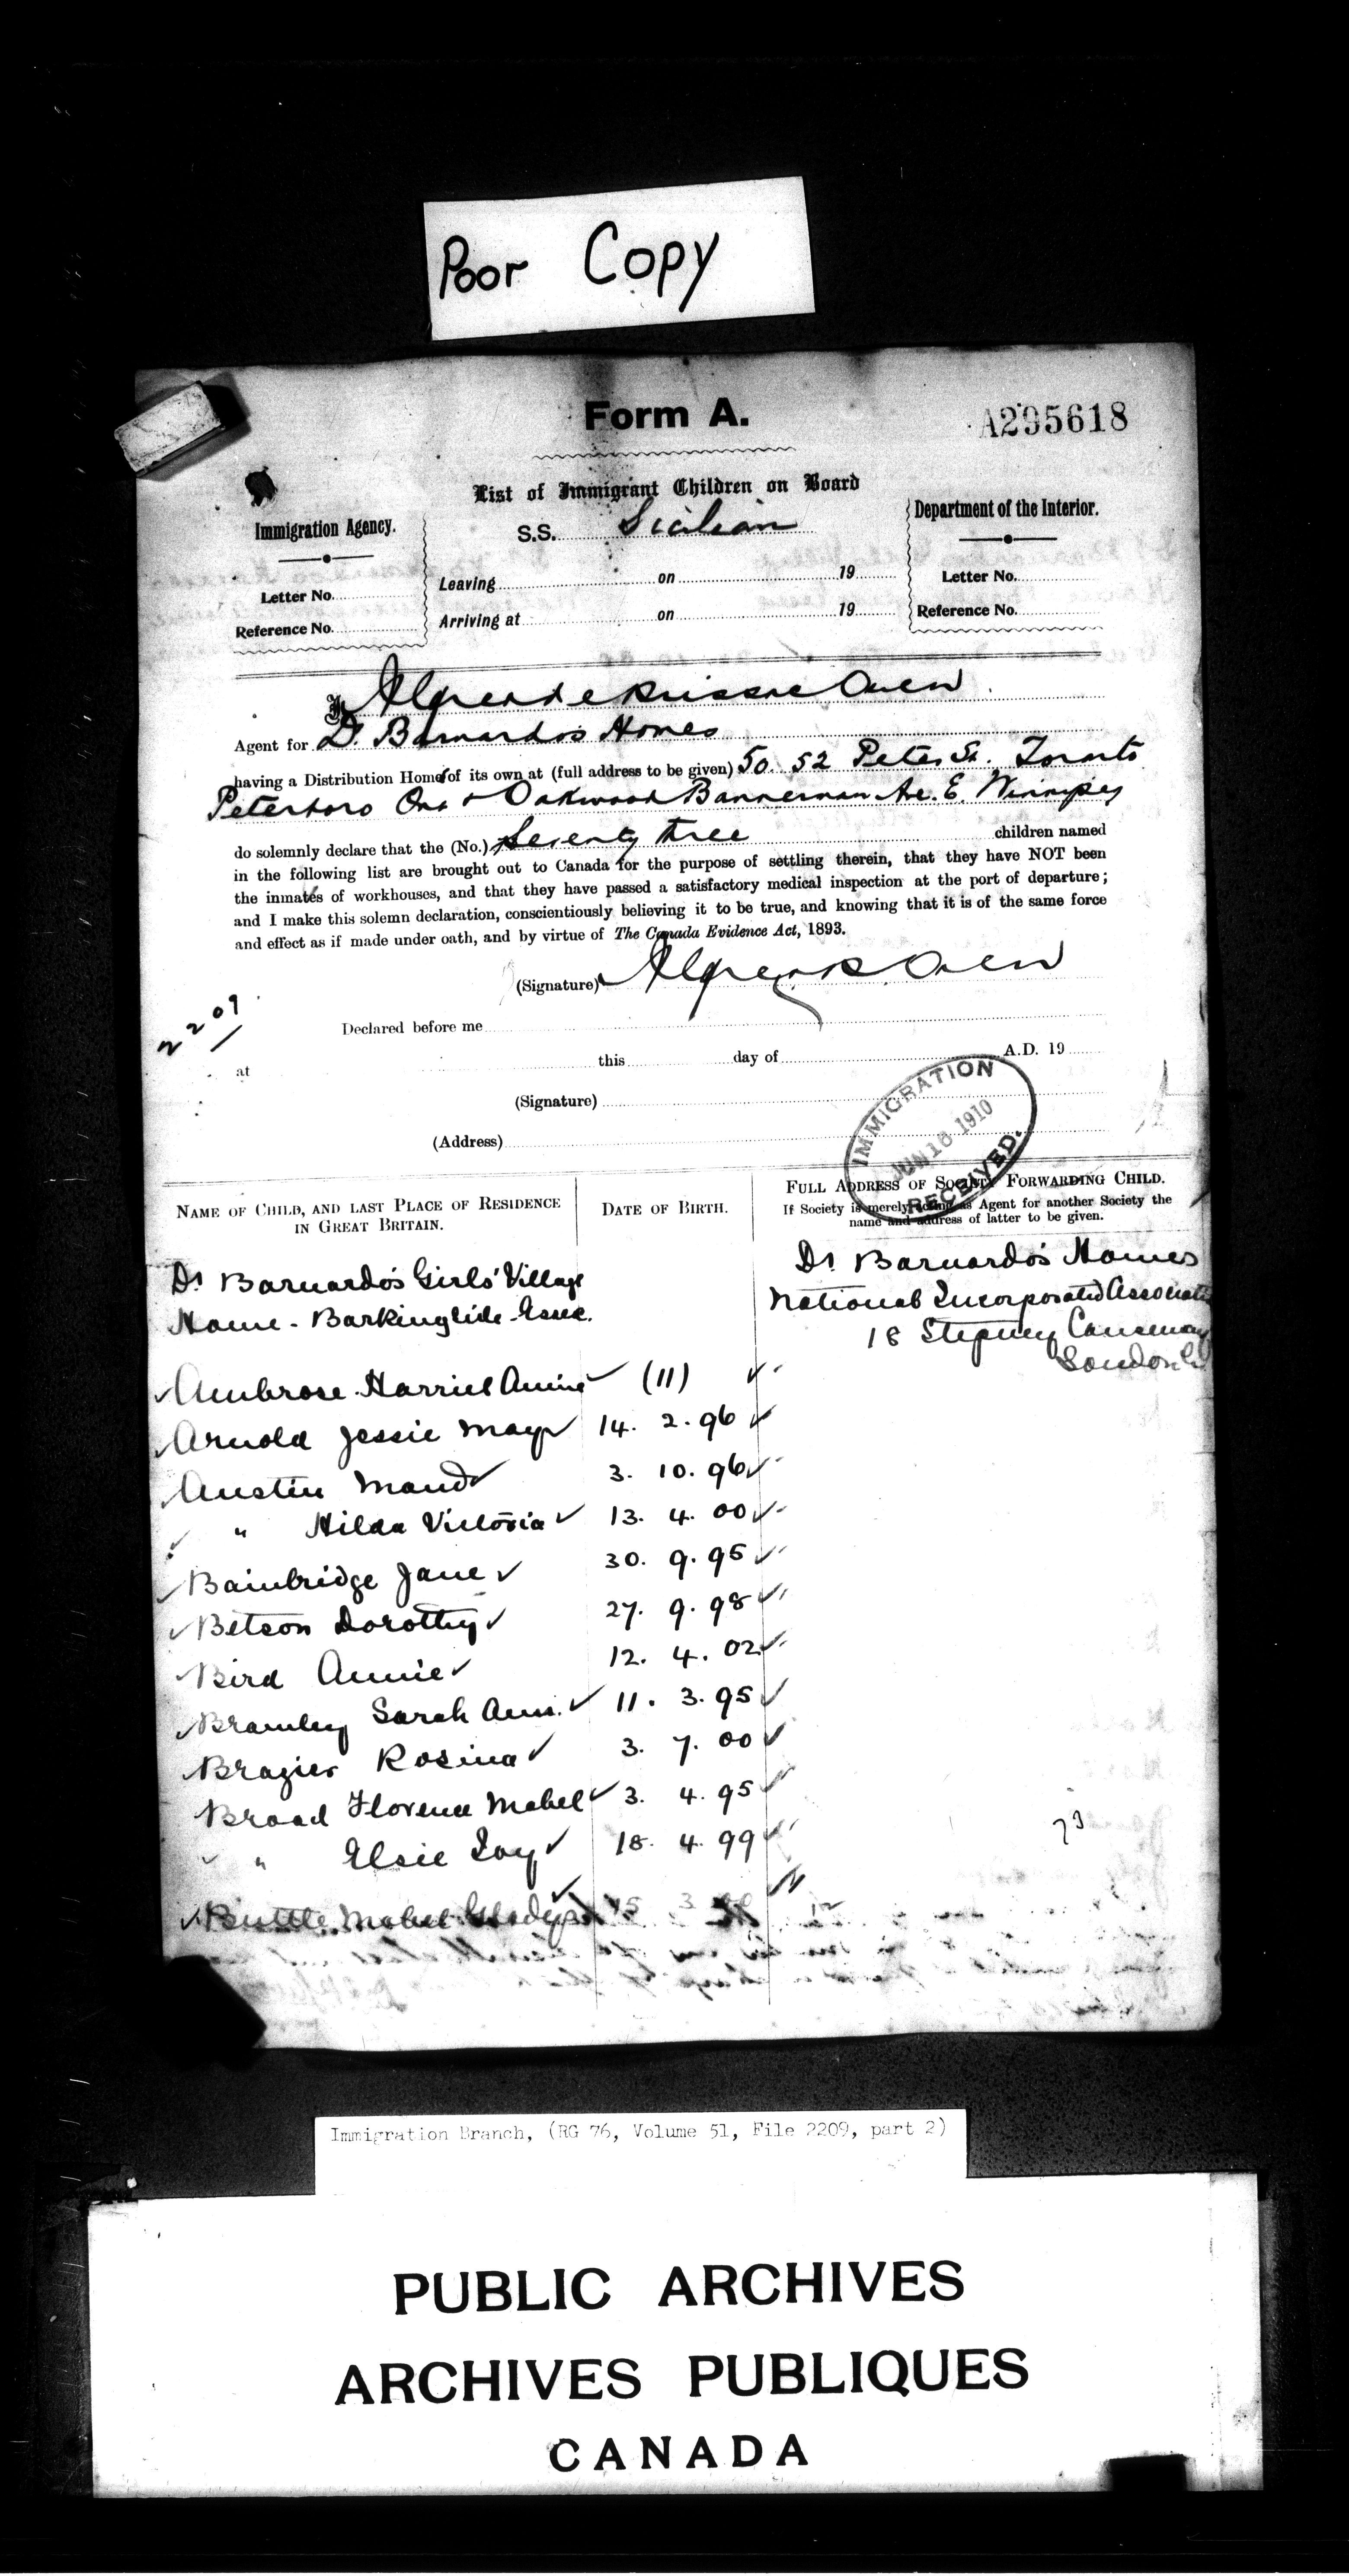 Poor Copy
Form A.
A295618
List of Immigrant Children on Board
S.S. Sicilian
Immigration Agency.
Letter No.
Reference No.
Leaving on 19
Arriving at on 19
Department of the Interior.
Letter No.
Reference No.
I, Alfred de Brissac Owen
Agent for Dr. Barnardos Homes
having a Distribution Home of its own at (full address to be given) 50. 52 Peter St. Toronto
Peterboro Ont + Oakwood Bannerman Ave. E. Winnipeg
do solemnly declare that the (No.) Seventy three children named
in the following list are brought out to Canada for the purpose of settling therein, that they have NOT been
the inmates of workhouses, and that they have passed a satisfactory medical inspection at the port of departure;
and I make this solemn declaration, conscientiously believing it to be true, and knowing that it is of the same force
and effect as if made under oath, and by virtue of The Canada Evidence Act, 1893.
(Signature) Alfred B Owen
2209
Declared before me
at this day of A.D. 19
(Signature)
(Address)
IMMIGRATION
JUN 16 1910
RECEIVED.
NAME OF CHILD, AND LAST PLACE OF RESIDENCE
IN GREAT BRITAIN.
DATE OF BIRTH.
FULL ADDRESS OF SOCIETY FORWARDING CHILD.
If Society is merely acting as Agent for another Society the
name and address of latter to be given.
Dr Barnardo's Girls' Village
Home - Barkingside Essex.
Dr Barnardo's Homes
National Incorporated Association
18 Stepney Causeway
London E.
Ambrose Harriet Annie (11)
Arnold Jessie May 14. 2. 96
Austin Maud 3. 10. 96
" Hilda Victoria 13. 4. 00
Bainbridge Jane 30. 9. 95
Betson Dorothy 27. 9. 98
Bird Annie 12. 4. 02
Bramley Sarah Ann. 11. 3. 95
Brazier Rosina 3. 7. 00
Broad Florence Mabel 3. 4. 95
" Elsie Ivy 18. 4. 99
73
Buttle Mabel Gladys
Immigration Branch, (RG 76, Volume 51, File 2209, part 2)
PUBLIC ARCHIVES
ARCHIVES PUBLIQUES
CANADA